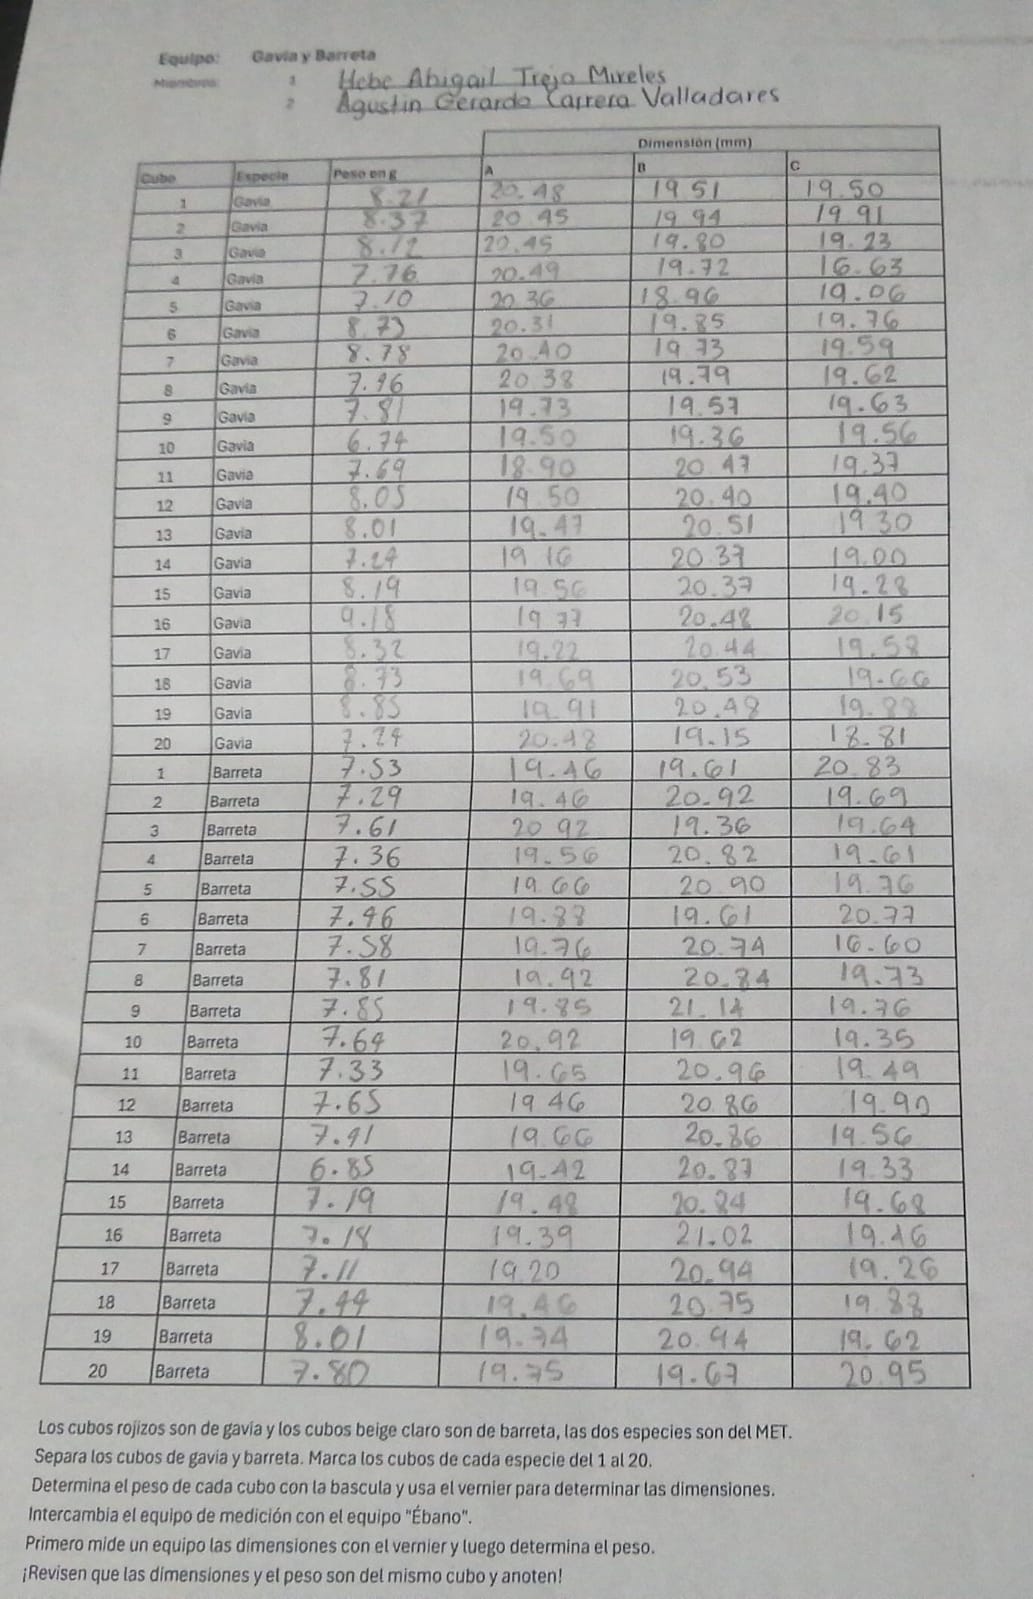 Equipo: Gavia y Barreta
Miembros 1 Hebe Abigail Trejo Mireles
2 Agustin Gerardo Carrera Valladares
Dimensión (mm)
Cubo Especie Peso en g A B C
1 Gavia 8.21 20.48 19.51 19.50
2 Gavia 8.37 20.45 19.94 19.91
3 Gavia 8.12 20.45 19.80 19.23
4 Gavia 7.76 20.49 19.72 16.63
5 Gavia 7.10 20.36 18.96 19.06
6 Gavia 8.73 20.31 19.85 19.76
7 Gavia 8.78 20.40 19.73 19.59
8 Gavia 7.96 20.38 19.79 19.62
9 Gavia 7.81 19.73 19.57 19.63
10 Gavia 6.74 19.50 19.36 19.56
11 Gavia 7.69 18.90 20.47 19.37
12 Gavia 8.05 19.50 20.40 19.40
13 Gavia 8.01 19.47 20.51 19.30
14 Gavia 7.24 19.16 20.37 19.00
15 Gavia 8.19 19.56 20.37 19.28
16 Gavia 9.18 19.77 20.48 20.15
17 Gavia 8.32 19.22 20.44 19.58
18 Gavia 8.73 19.69 20.53 19.66
19 Gavia 8.85 19.91 20.48 19.88
20 Gavia 7.24 20.48 19.15 18.81
1 Barreta 7.53 19.46 19.61 20.83
2 Barreta 7.29 19.46 20.92 19.69
3 Barreta 7.61 20.92 19.36 19.64
4 Barreta 7.36 19.56 20.82 19.61
5 Barreta 7.55 19.66 20.90 19.76
6 Barreta 7.46 19.88 19.61 20.77
7 Barreta 7.58 19.76 20.74 16.60
8 Barreta 7.81 19.92 20.84 19.73
9 Barreta 7.85 19.85 21.14 19.76
10 Barreta 7.64 20.92 19.62 19.35
11 Barreta 7.33 19.65 20.96 19.49
12 Barreta 7.65 19.46 20.86 19.90
13 Barreta 7.41 19.66 20.86 19.56
14 Barreta 6.85 19.42 20.87 19.33
15 Barreta 7.19 19.48 20.84 19.68
16 Barreta 7.18 19.39 21.02 19.46
17 Barreta 7.11 19.20 20.94 19.26
18 Barreta 7.44 19.46 20.75 19.88
19 Barreta 8.01 19.74 20.94 19.62
20 Barreta 7.80 19.75 19.67 20.95
Los cubos rojizos son de gavia y los cubos beige claro son de barreta, las dos especies son del MET.
Separa los cubos de gavia y barreta. Marca los cubos de cada especie del 1 al 20.
Determina el peso de cada cubo con la bascula y usa el vernier para determinar las dimensiones.
Intercambia el equipo de medición con el equipo "Ébano".
Primero mide un equipo las dimensiones con el vernier y luego determina el peso.
¡Revisen que las dimensiones y el peso son del mismo cubo y anoten!